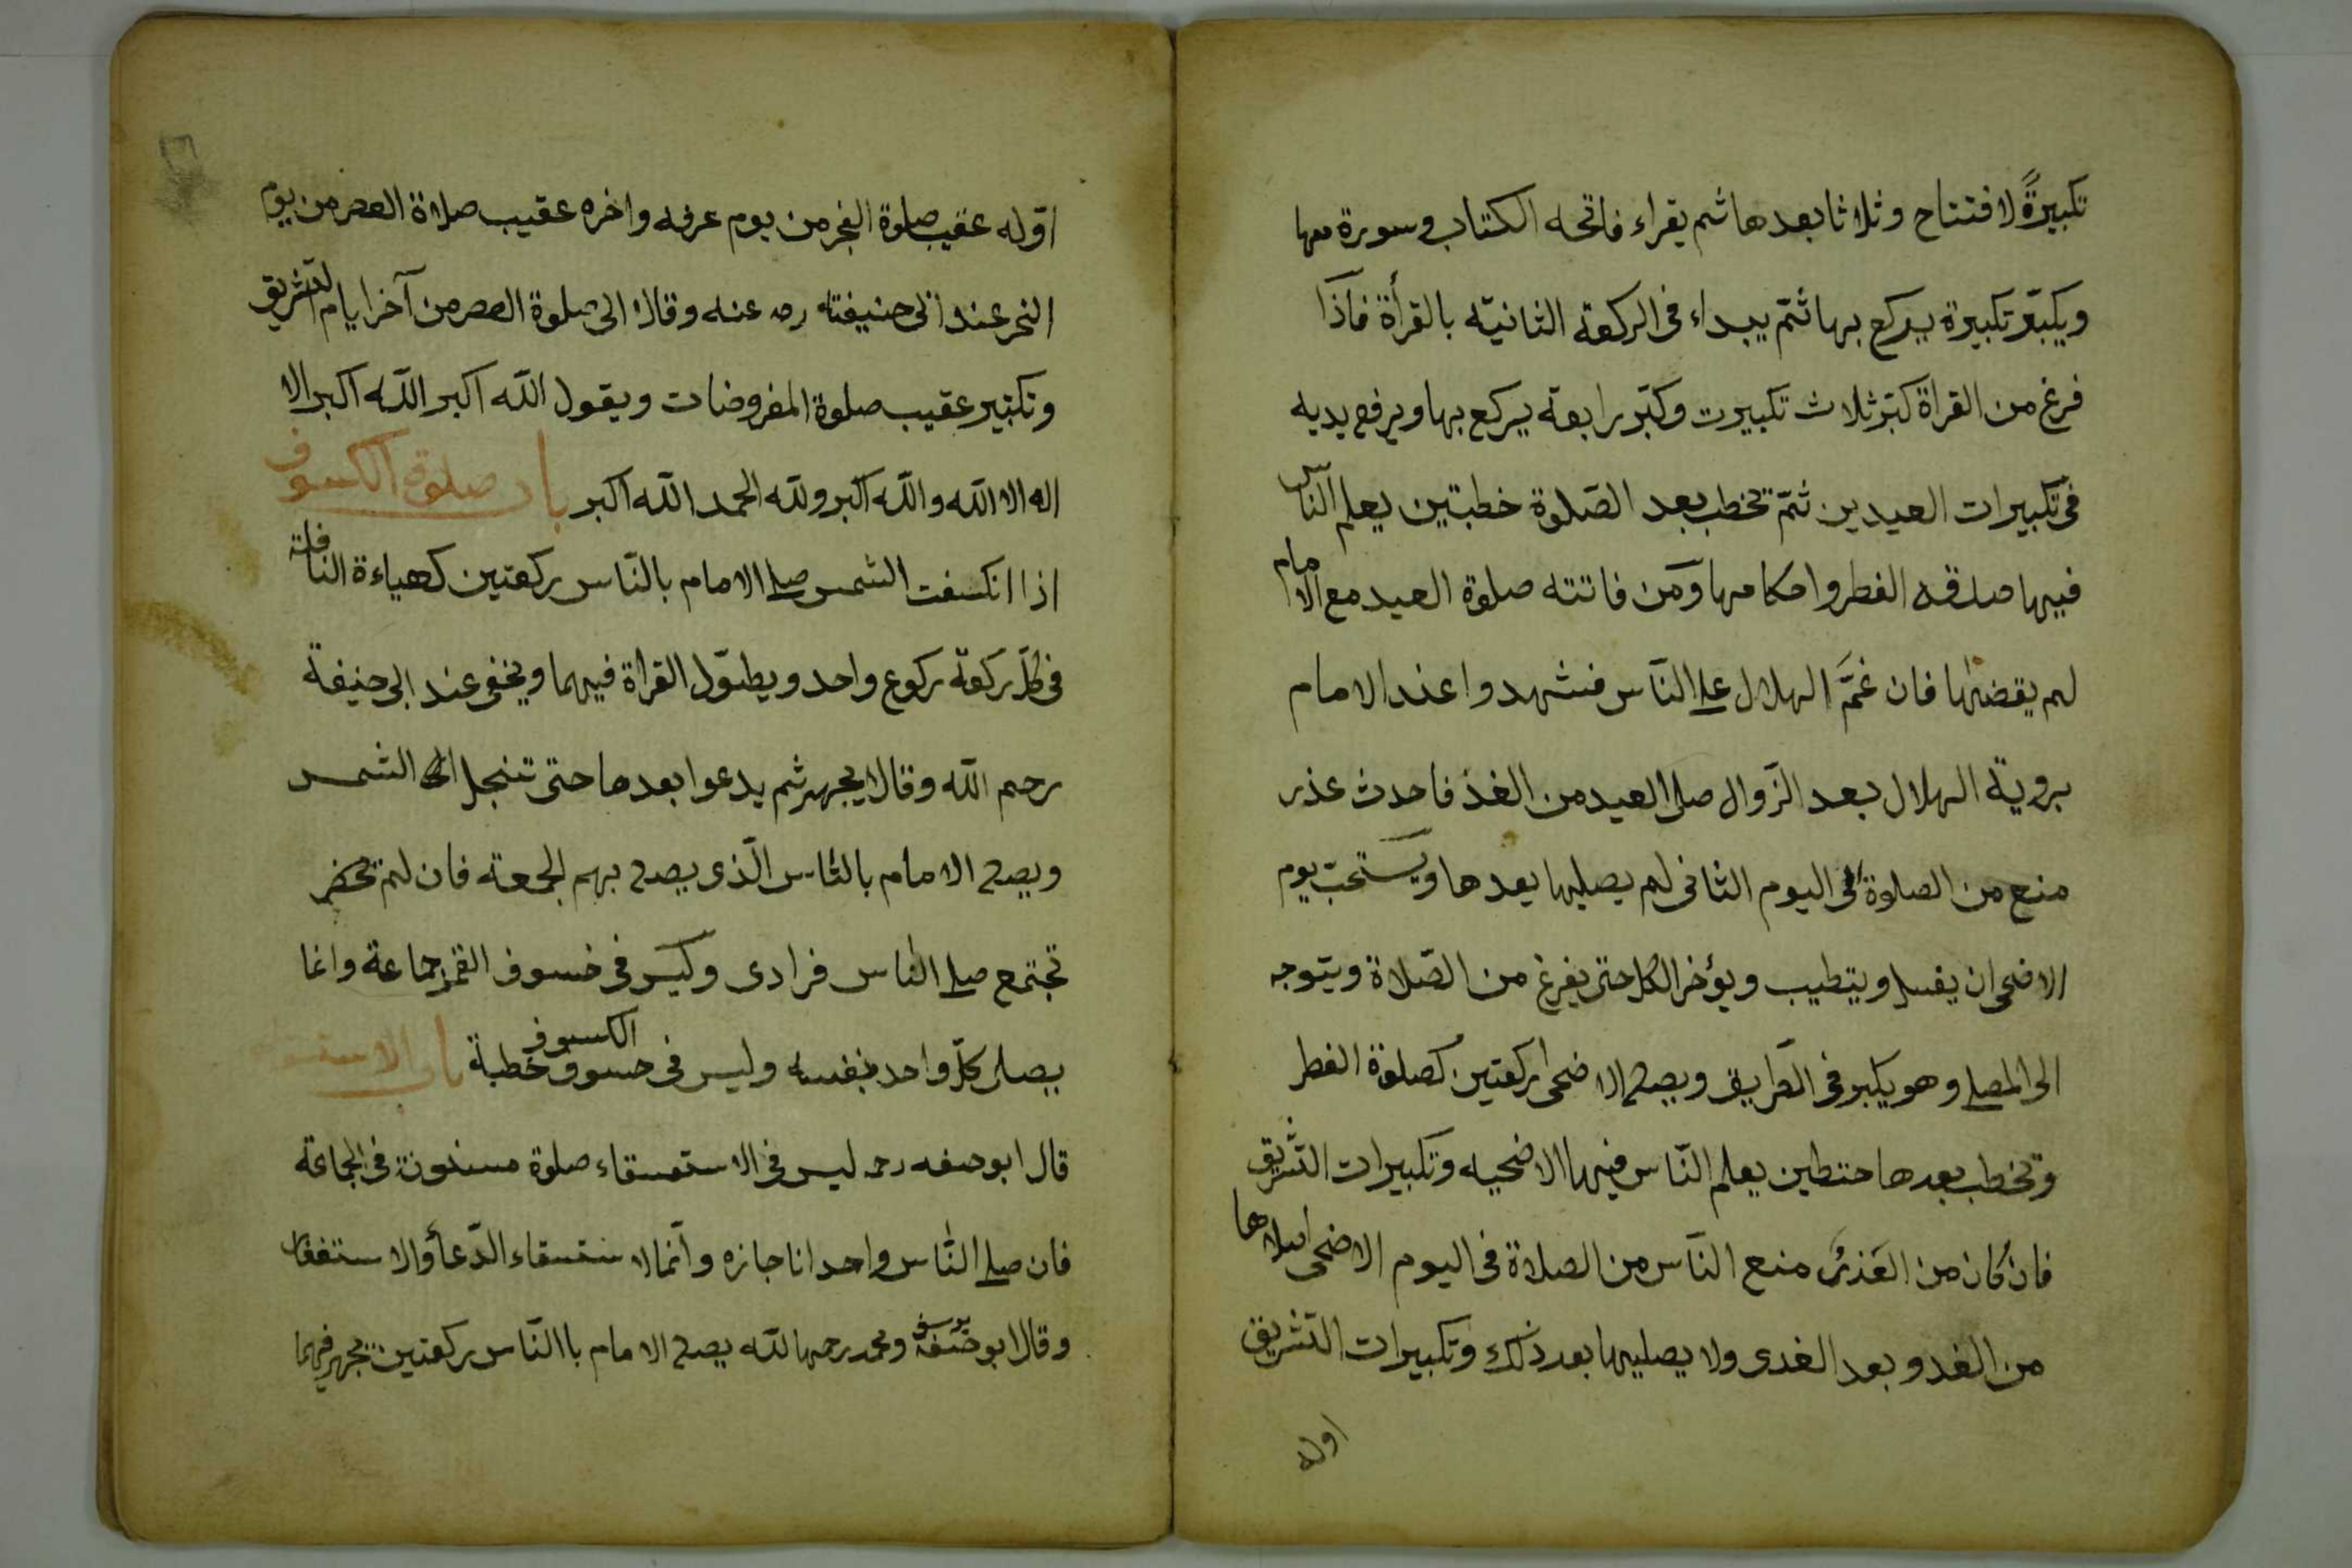 تكبيرةً لافتتاح وثلاثا بعدها ثم يقراء فاتحه الكتاب وسورة معها
ويكبّر تكبيرة يركع بها ثمّ يبداء فى الركعة الثانيّة بالقرأة فاذا
فرغ من القراة كبّر ثلاث تكبيرت وكبّر رابعة يركع بها ويرفع يديه
فى تكبيرات العيدين ثمّ تخطب بعد الصّلوة خطبتين يعلم النّاس
فيها صدقه الفطر واحكامها ومن فاتته صلوة العيد مع الامام
لم يقضها فان غمَّ الهلال على النّاس فشهدوا عند الامام
بروية الهلال بعد الزّوال صلى العيد من الغد فاحدث عذر
منع من الصلوة فى اليوم الثانى لم يصليها بعدها ويستحبّ يوم
الاضحى ان يغسل ويتطيب ويؤخر الاكل حتى يفرغ من الصّلاة ويتوجه
الى المصلى وهو يكبر فى الطّريق ويصلى الاضحى ركعتين كصلوة الفطر
وتخطب بعدها خطبتين يعلم النّاس فيها الاضحيه وتكبيرات التّشريق
فان كان من العذر منع النّاس من الصلاة فى اليوم الاضحى صلاها
من الغد وبعد الغدى ولا يصليها بعد ذلك وتكبيرات التّشريق
اوله
اوّله عقيب صلوة الفجر من يوم عرفه واخره عقيب صلاة العصر من يوم
النحر عند ابى حنيفته رحه عنه وقالا الى صلوة العصر من آخر ايام التشريق
وتكبير عقيب صلوة المفروضات ويقول اللّه اكبر اللّه اكبر الا
اله الا اللّه واللّه اكبر وللّه الحمد اللّه اكبر باب صلوة الكسوف
اذا انكسفت الشمس صلى الامام بالنّاس ركعتين كهياءة النافلة
فى كلّ ركعة ركوع واحد ويطوّل القراة فيهما ويخفى عند ابى حنيفة
رحم اللّه وقالا يجهر ثم يدعوا بعدها حتى تنجلى الشمس
ويصلى الامام بالنّاس الّذى يصلى بهم الجمعة فان لم تحضر
تجتمع صلى النّاس فرادى وليس فى خسوف القمر جماعة وانما
يصلى كلّ واحد بنفسه وليس فى خسوف الكسوف خطبة باب الاستسقا
قال ابو حنيفه رحه ليس فى الاستسقاء صلوة مسنونة فى الجماعة
فان صلى النّاس واحدانا جازه وانّما الاستسقاء الدّعاء والاستغفار
وقال ابو حنيفة يوسف ومحمد رحمها اللّه يصلى الامام باالنّاس ركعتين يجهر فيهما